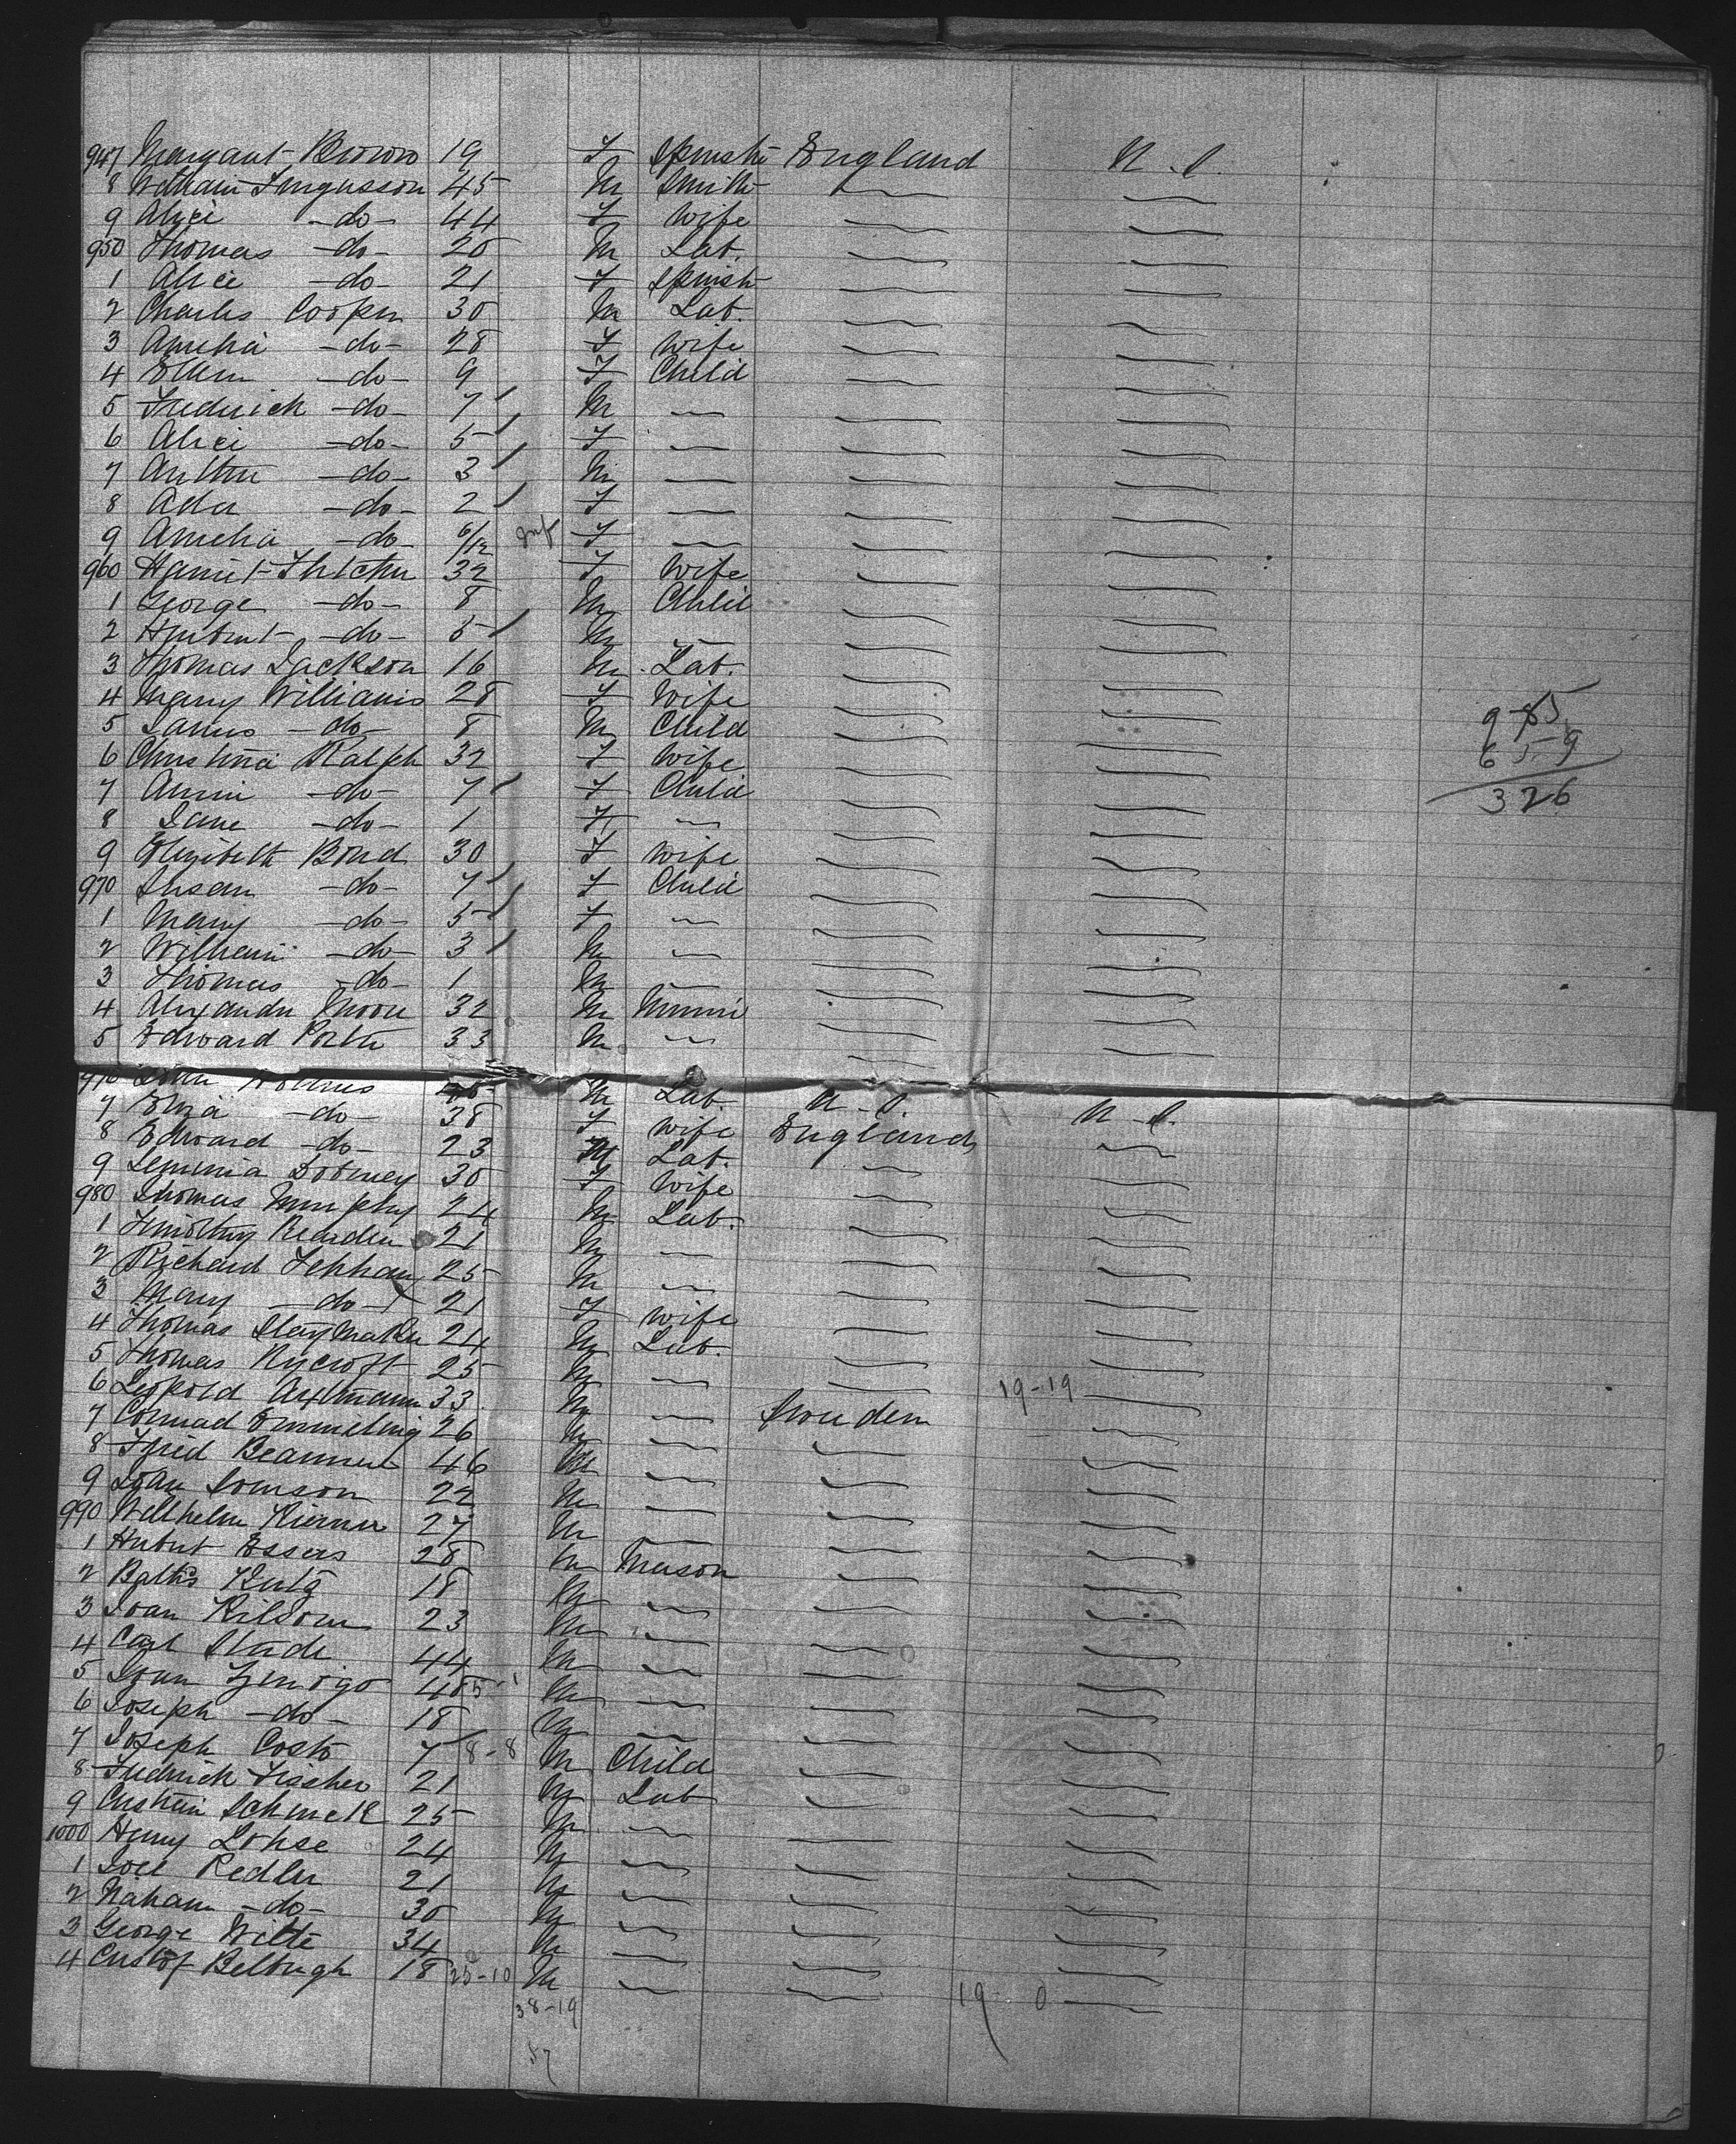 947 Margaret Brown 19 F Spinstr England U.S.
8 William Fergusson 45 M Smith
9 Alice -do- 44 F Wife
950 Thomas -do- 20 M Lab.
1 Alice -do- 21 F Spinst
2 Charles Cooper 30 M Lab.
3 Amelia -do- 28 F Wife
4 Ellen -do- 9 F Child
5 Fredrick -do- 7 M
6 Alice -do- 5 F
7 Arthur -do- 3 M
8 Ada -do- 2 F
9 Amelia -do- 6/12 Inf F
960 Harriet Fletcher 32 F Wife
1 George -do- 8 M Child
2 Herbert -do- 5 M
3 Thomas Jackson 16 M Lab.
4 Mary Williams 28 F Wife
5 James -do- 8 M Child
985
6 Christina Ralph 32 F Wife
659
7 Annie -do- 7 F Child
326
8 Jane -do- 1 F
9 Elizabeth Bond 30 F Wife
970 Susan -do- 7 F Child
1 Mary -do- 5 F
2 William -do- 3 M
3 Thomas -do- 1 M
4 Alexander Moore 32 M Miner
5 Edward Porter 33 M
976 M Lab U.S. U.S.
7 Eliza -do- 38 F Wife England
8 Edward -do- 23 M Lab.
9 Jemima 30 F Wife
980 Thomas Murphy 24 M Lab.
1 Timothy Rearden 21 M
2 Richard 25 M
3 Mary -do- 21 F Wife
4 Thomas Slaymaker 24 M Lab.
5 Thomas Rycroft 25 M 19-19
6 Leopold 33 M Sweden
7 Conrad Emmeling 26 M
8 46 M
9 22 M
990 Wilhelm 27 M
1 Hubert Essers 28 M Mason
2 18 M
3 Joan 23 M
4 Carl Stade 44 M
5 M
6 Joseph -do- 18 M
7 Joseph Costo 7 8-8 M Child
8 Fredrick Fischer 21 M Lab
9 25 M
1000 Henry Lohse 24 M
1 Joel Redler 21 M
2 Naham -do- 30 M
3 George Witte 34 M
4 18 25-10 M 19 0
38-19
57